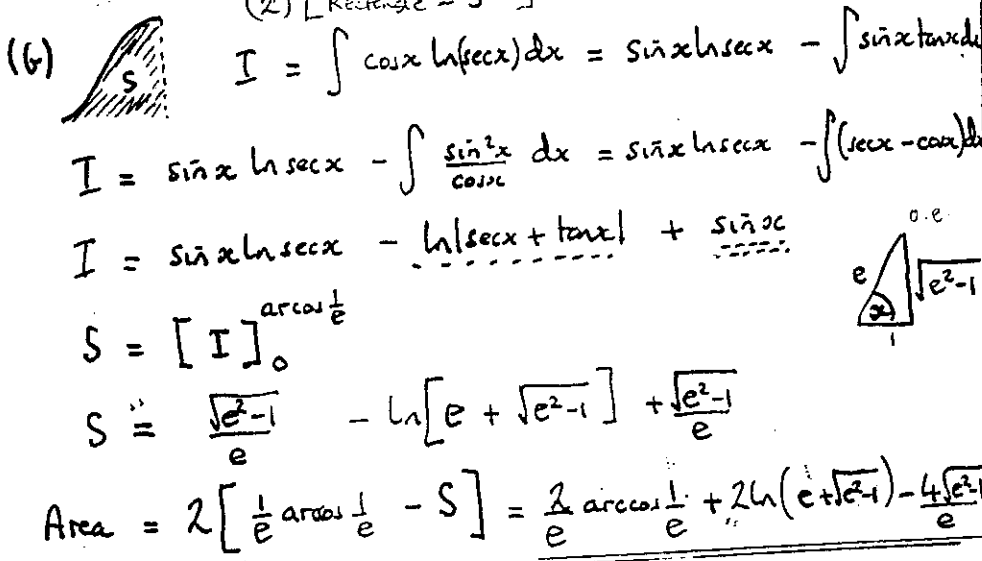 (2) [Rectangle - S]
(b) S I = ∫ cosx ln(secx) dx = sinx ln secx - ∫ sinx tanx dx
I = sinx ln secx - ∫ sin²x/cosx dx = sinx ln secx - ∫(secx - cosx)dx
o.e.
I = sinx ln secx - ln|secx + tanx| + sinx
e x √(e²-1) 1
S = [I]₀^(arcos 1/e)
S = √(e²-1)/e - ln[e + √(e²-1)] + √(e²-1)/e
Area = 2[1/e arcos 1/e - S] = 2/e arccos 1/e + 2ln(e+√(e²-1)) - 4√(e²-1)/e